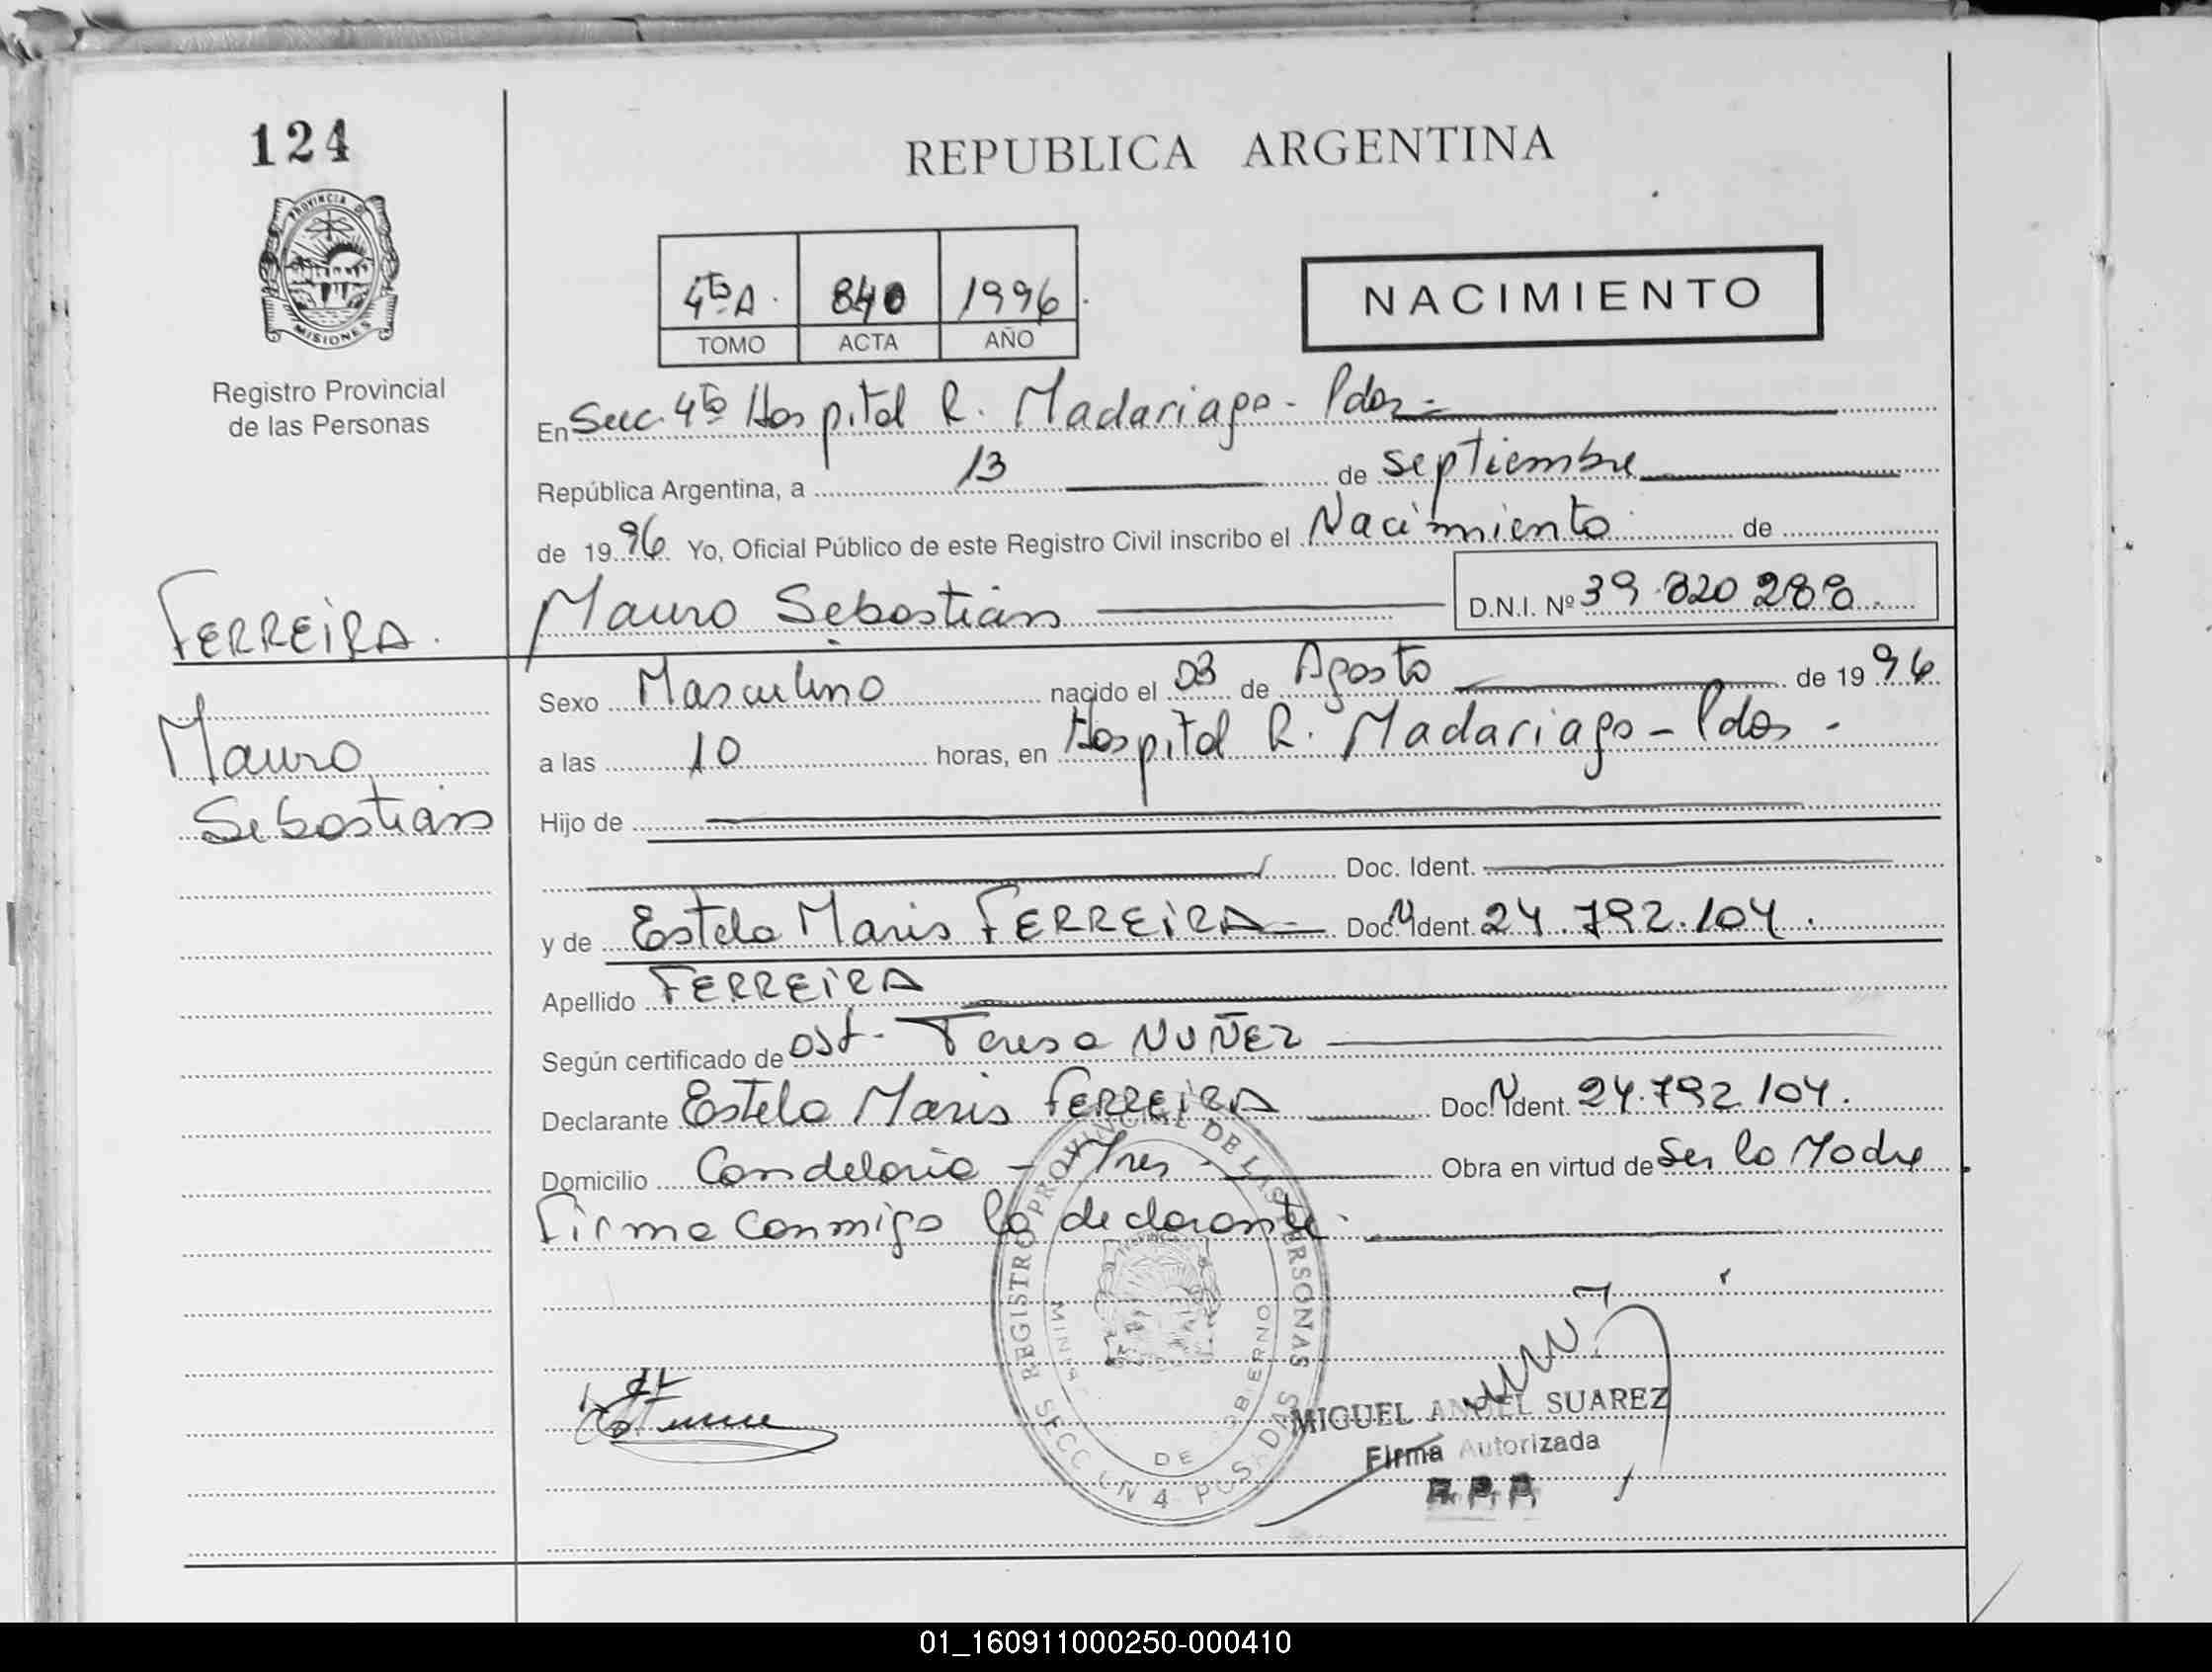 124
REPUBLICA ARGENTINA
PROVINCIA DE
MISIONES
Registro Provincial
de las Personas
4ta A. 840 1996
TOMO ACTA AÑO
NACIMIENTO
En Secc. 4ta Hospital R. Madariaga - Pdas -
República Argentina, a 13 de septiembre
de 1996 Yo, Oficial Público de este Registro Civil inscribo el Nacimiento de
FERREIRA.
Mauro Sebastián D.N.I. Nº 39.820 288.
Sexo Masculino nacido el 03 de Agosto de 1996
Mauro
Sebastián
a las 10 horas, en Hospital R. Madariaga - Pdas -
Hijo de
Doc. Ident.
y de Estela Maris FERREIRA - Doc. Ident. 24.792.104.
Apellido FERREIRA
Según certificado de Obst. Teresa NUÑEZ
Declarante Estela Maris FERREIRA Doc. Ident. 24.792 104.
Domicilio Candelaria - Mnes - Obra en virtud de Ser la Madre
Firma conmigo la declarante.
REGISTRO PROVINCIAL DE LAS PERSONAS
DE GOBIERNO
SECCION 4 POSADAS
MIGUEL ANGEL SUAREZ
Firma Autorizada
01_160911000250-000410